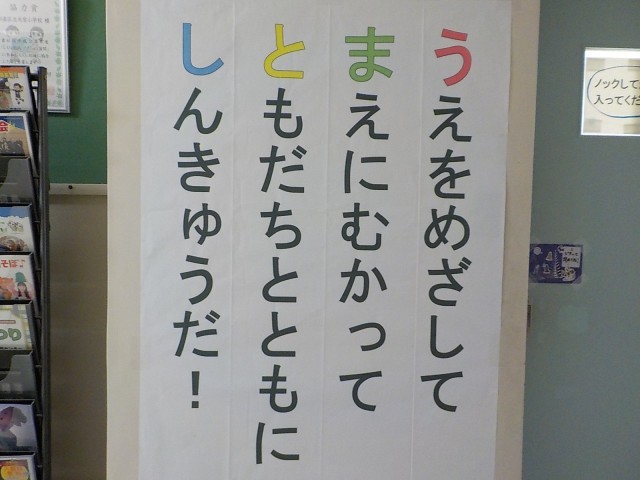 うえをめざして
まえにむかって
ともだちとともに
しんきゅうだ！
ノックして
入ってくだ